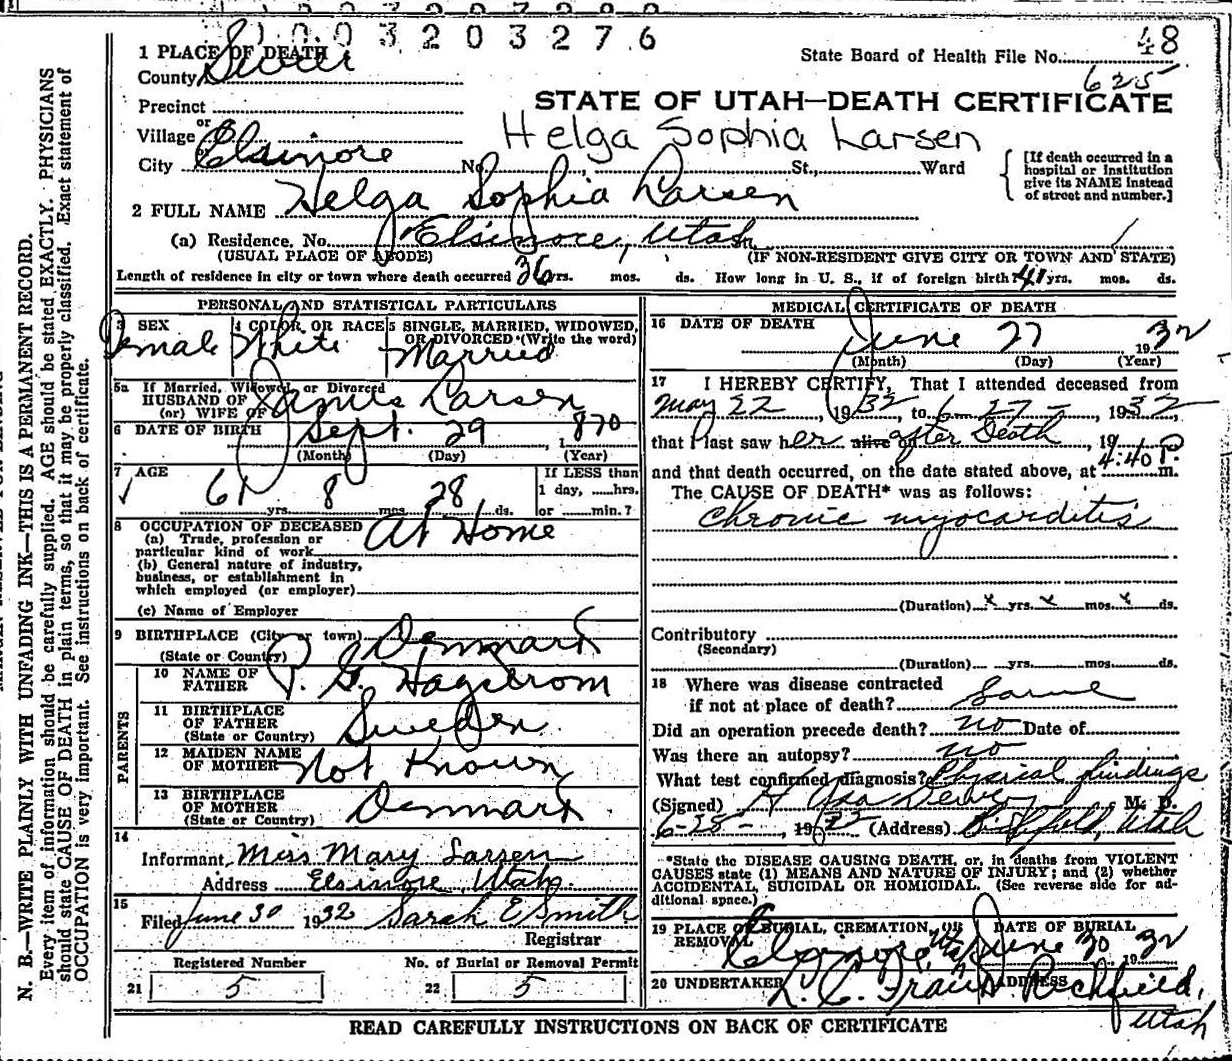 1003203276
48
State Board of Health File No.
625
1 PLACE OF DEATH
County Sevier
Precinct
or
Village
or
City Elsinore No. St., Ward
STATE OF UTAH—DEATH CERTIFICATE
Helga Sophia Larsen
[If death occurred in a hospital or institution give its NAME instead of street and number.]
2 FULL NAME Helga Sophia Larsen
(a) Residence. No. Elsinore, Utah
(USUAL PLACE OF ABODE) (IF NON-RESIDENT GIVE CITY OR TOWN AND STATE)
Length of residence in city or town where death occurred 36 yrs. mos. ds. How long in U. S., if of foreign birth? 41 yrs. mos. ds.
PERSONAL AND STATISTICAL PARTICULARS
3 SEX 4 COLOR OR RACE 5 SINGLE, MARRIED, WIDOWED, OR DIVORCED (Write the word)
Female White Married
5a If Married, Widowed, or Divorced
HUSBAND OF
(or) WIFE OF Larsen
6 DATE OF BIRTH Sept. 29, 1870
(Month) (Day) (Year)
7 AGE If LESS than
61 yrs. 8 mos. 28 ds. 1 day, hrs.
or min.?
8 OCCUPATION OF DECEASED At Home
(a) Trade, profession or
particular kind of work
(b) General nature of industry,
business, or establishment in
which employed (or employer)
(c) Name of Employer
9 BIRTHPLACE (City or town) Denmark
(State or Country)
PARENTS
10 NAME OF FATHER P. G. Hagstrom
11 BIRTHPLACE OF FATHER Sweden
(State or Country)
12 MAIDEN NAME OF MOTHER Not Known
13 BIRTHPLACE OF MOTHER Denmark
(State or Country)
14
Informant, Miss Mary Larsen
Address Elsinore Utah.
15
Filed June 30 1932 Sarah E Smith
Registrar
Registered Number No. of Burial or Removal Permit
21 5 22 5
MEDICAL CERTIFICATE OF DEATH
16 DATE OF DEATH
June 27 1932
(Month) (Day) (Year)
17 I HEREBY CERTIFY, That I attended deceased from
May 22, 1932, to 6-27-, 1932,
that I last saw her alive on after Death, 19
and that death occurred, on the date stated above, at 4:40 P. m.
The CAUSE OF DEATH* was as follows:
Chronic myocarditis
(Duration) x yrs. x mos. x ds.
Contributory
(Secondary)
(Duration) yrs. mos. ds.
18 Where was disease contracted
if not at place of death? Same
Did an operation precede death? no Date of
Was there an autopsy? no
What test confirmed diagnosis? Physical findings
(Signed) M. D.
6-28-, 19 (Address) Richfield, Utah
*State the DISEASE CAUSING DEATH, or, in deaths from VIOLENT
CAUSES state (1) MEANS AND NATURE OF INJURY; and (2) whether
ACCIDENTAL, SUICIDAL OR HOMICIDAL. (See reverse side for ad-
ditional space.)
19 PLACE OF BURIAL, CREMATION, OR REMOVAL DATE OF BURIAL
Elsinore, Utah June 30 1932
20 UNDERTAKER ADDRESS
L. C. Richfield,
Utah
READ CAREFULLY INSTRUCTIONS ON BACK OF CERTIFICATE
N. B.—WRITE PLAINLY WITH UNFADING INK—THIS IS A PERMANENT RECORD.
Every item of information should be carefully supplied. AGE should be stated EXACTLY. PHYSICIANS
should state CAUSE OF DEATH in plain terms, so that it may be properly classified. Exact statement of
OCCUPATION is very important. See instructions on back of certificate.